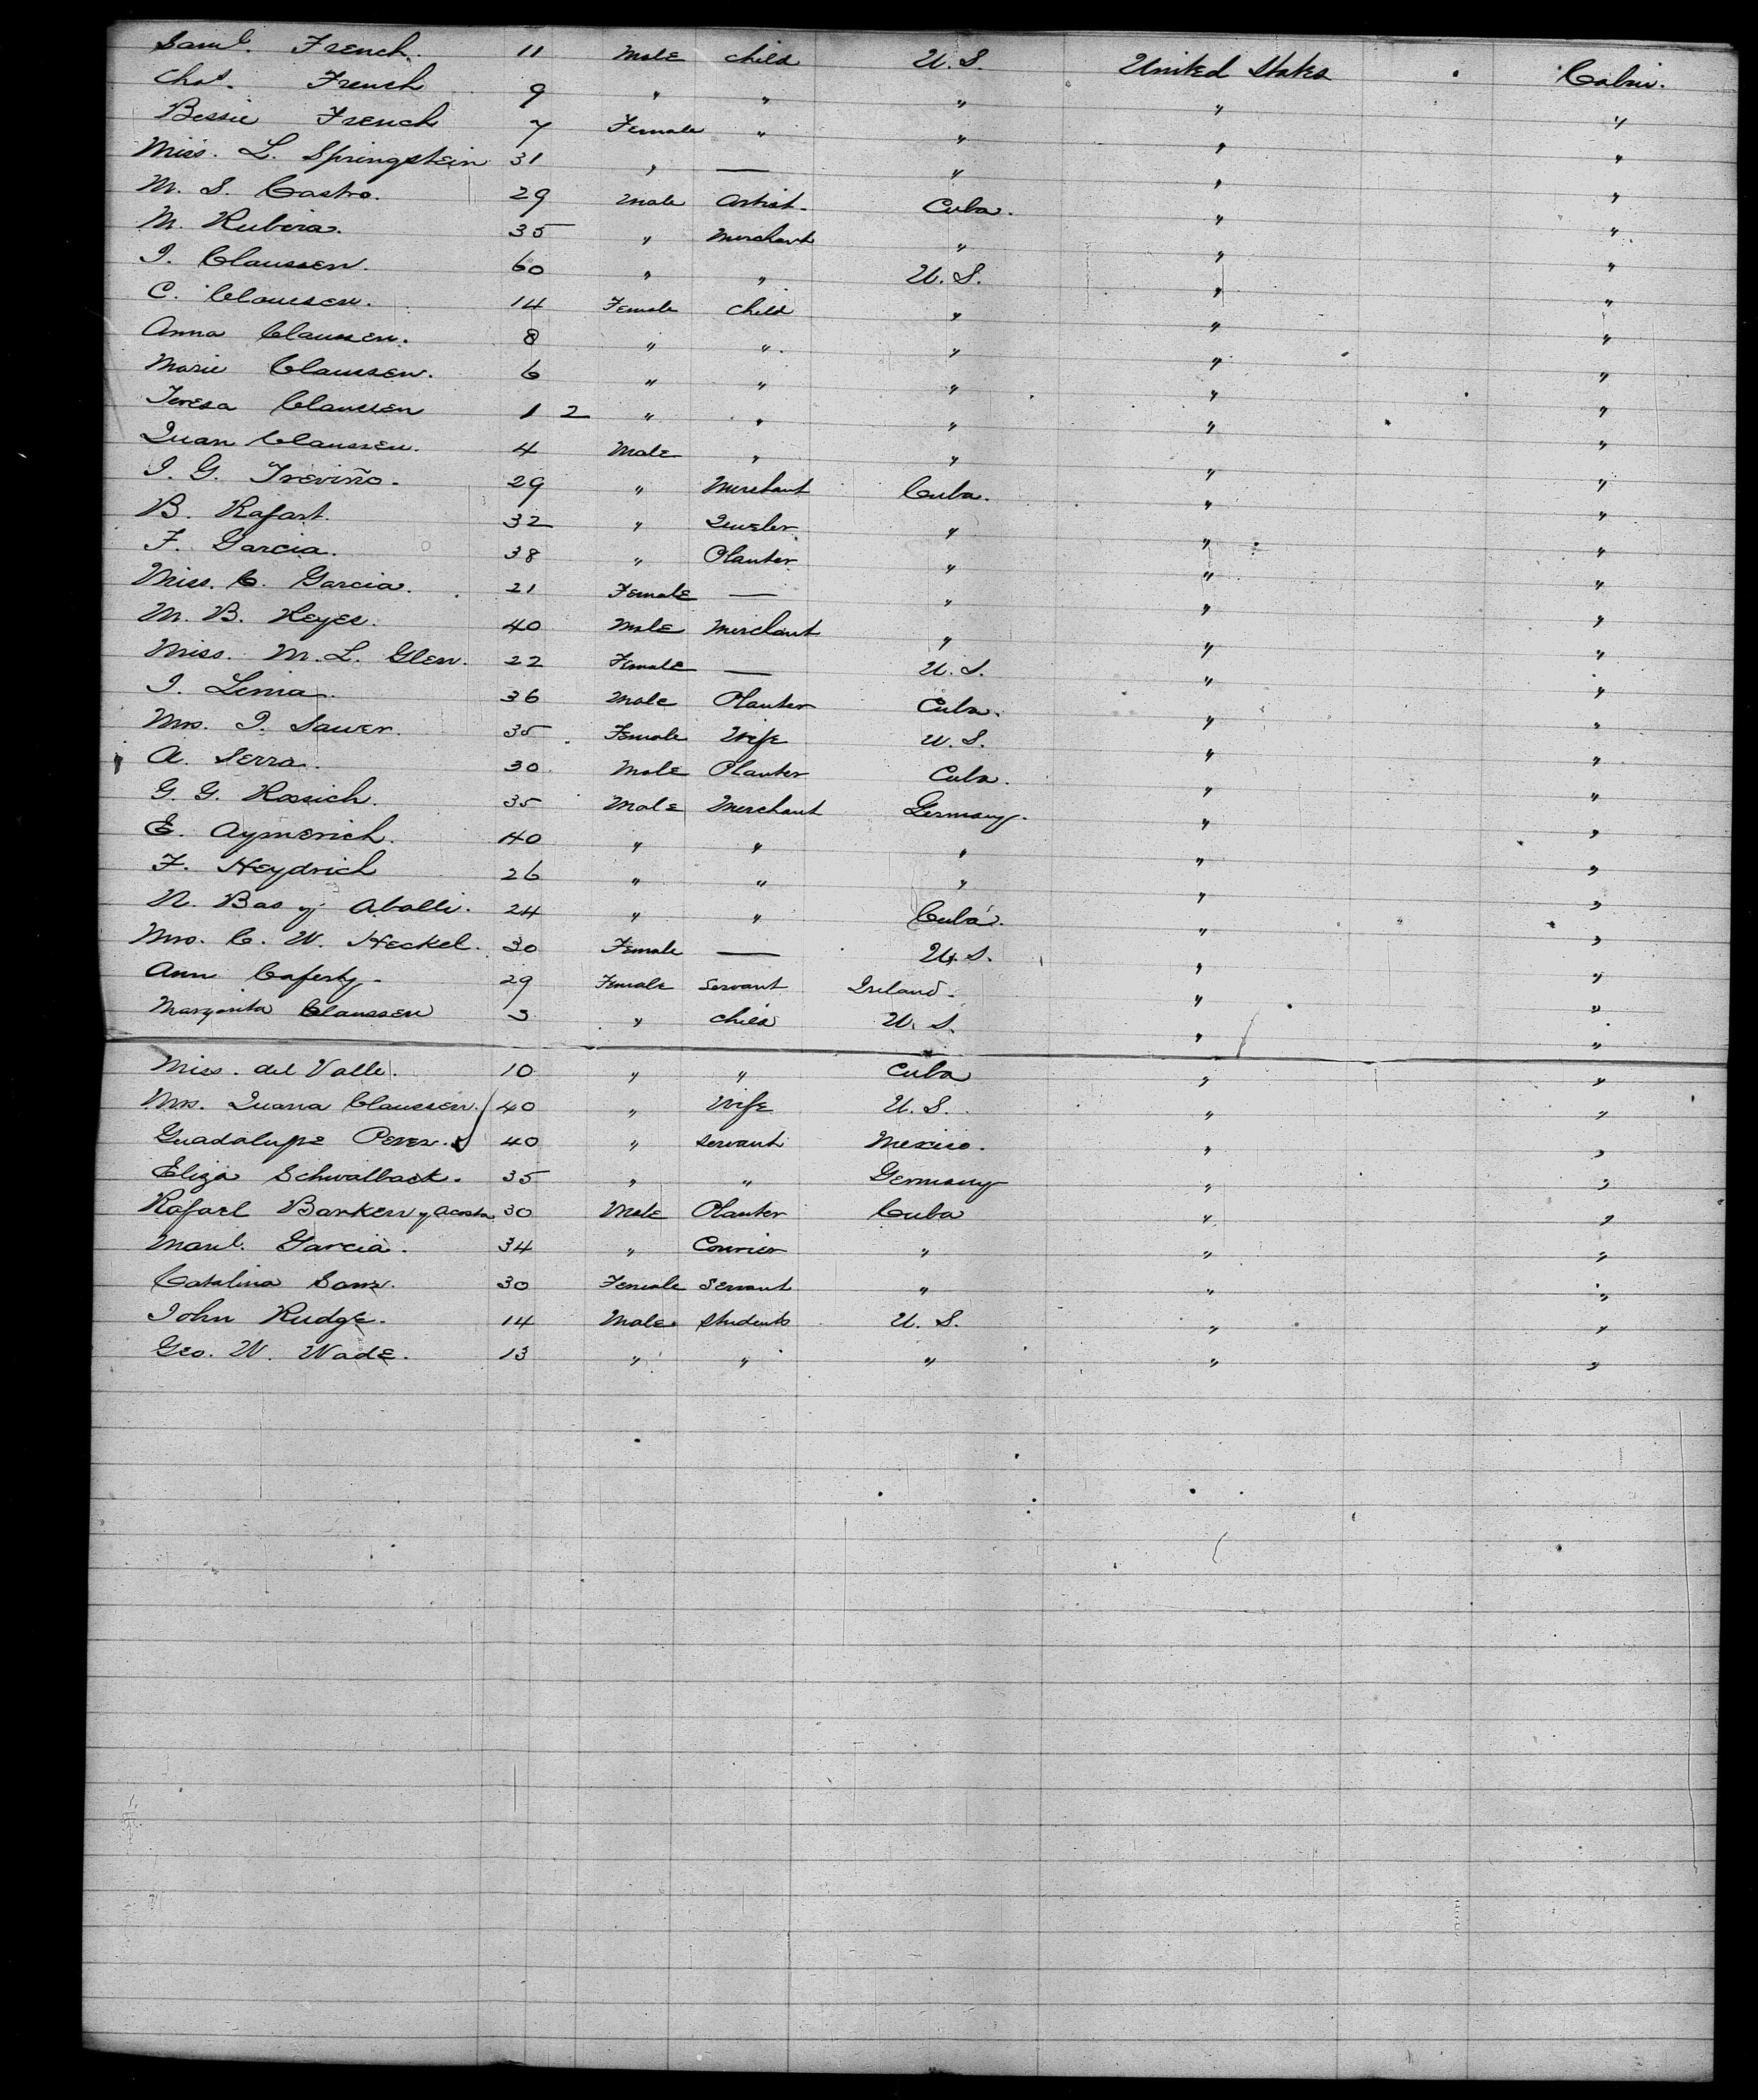 Saml. French. 11 Male child U.S. United States Cabin.
Chas. French 9 " " " " "
Bessie French 7 Female " " " "
Miss. L. Springstein 31 " — " " "
M. S. Castro. 29 Male Artist. Cuba. " "
M. Rubira. 35 " Merchant " " "
I. Claussen. 60 " " U.S. " "
C. Claussen. 14 Female child " " "
Anna Claussen. 8 " " " " "
Marie Claussen. 6 " " " " "
Teresa Claussen 1 2 " " " " "
Juan Claussen. 4 Male " " " "
I. G. Treviño. 29 " Merchant Cuba. " "
B. Rafart. 32 " Jeweler " " "
F. Garcia. 38 " Planter " " "
Miss. C. Garcia. 21 Female — " " "
M. B. Reyes. 40 Male Merchant " " "
Miss. M. L. Glen. 22 Female — U.S. " "
I. Lima. 36 Male Planter Cuba. " "
Mrs. I. Sawer. 35 Female Wife U.S. " "
A. Serra. 30 Male Planter Cuba. " "
G. G. Rossich. 35 Male Merchant Germany. " "
E. Aymerich. 40 " " " " "
F. Heydrich 26 " " " " "
N. Bas y Aballi. 24 " " Cuba. " "
Mrs. C. W. Heckel. 30 Female — U.S. " "
Ann Caferty. 29 Female Servant Ireland. " "
Margarita Claussen 3 " child U.S. " "
Miss. del Valle. 10 " " Cuba " "
Mrs. Juana Claussen. 40 " Wife U.S. " "
Guadalupe Perez. 40 " Servant Mexico. " "
Eliza Schwalback. 35 " " Germany " "
Rafael Barker y Acosta 30 Male Planter Cuba " "
Manl. Garcia. 34 " Courier " " "
Catalina Sanz. 30 Female Servant " " "
John Rudge. 14 Male Students U.S. " "
Geo. W. Wade. 13 " " " " "